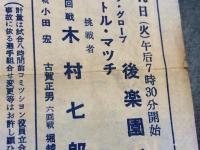 日(火)午后7時30分開始
後楽園
・グローブ
トル・マツチ
挑戦者
回戦 木村七郎
小田宏
古賀正男 六回戦 堀越
計量は試合八時間前コミツシヨン役員立合
事故に依る選手組合せ変更等はお許し願ひ